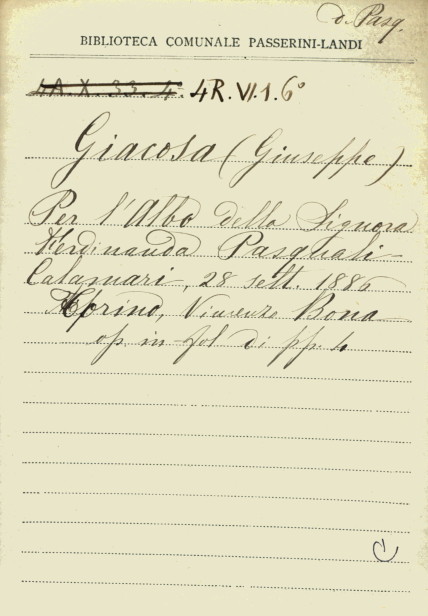 d. Pasq.
BIBLIOTECA COMUNALE PASSERINI-LANDI
4A. X. 33. 4° 4R. VI. 1. 6°
Giacosa (Giuseppe)
Per l'Albo della Signora
Ferdinanda Pasquali-
Calamari, 28 sett. 1886
Torino, Vincenzo Bona
op. in fol di pp. 4